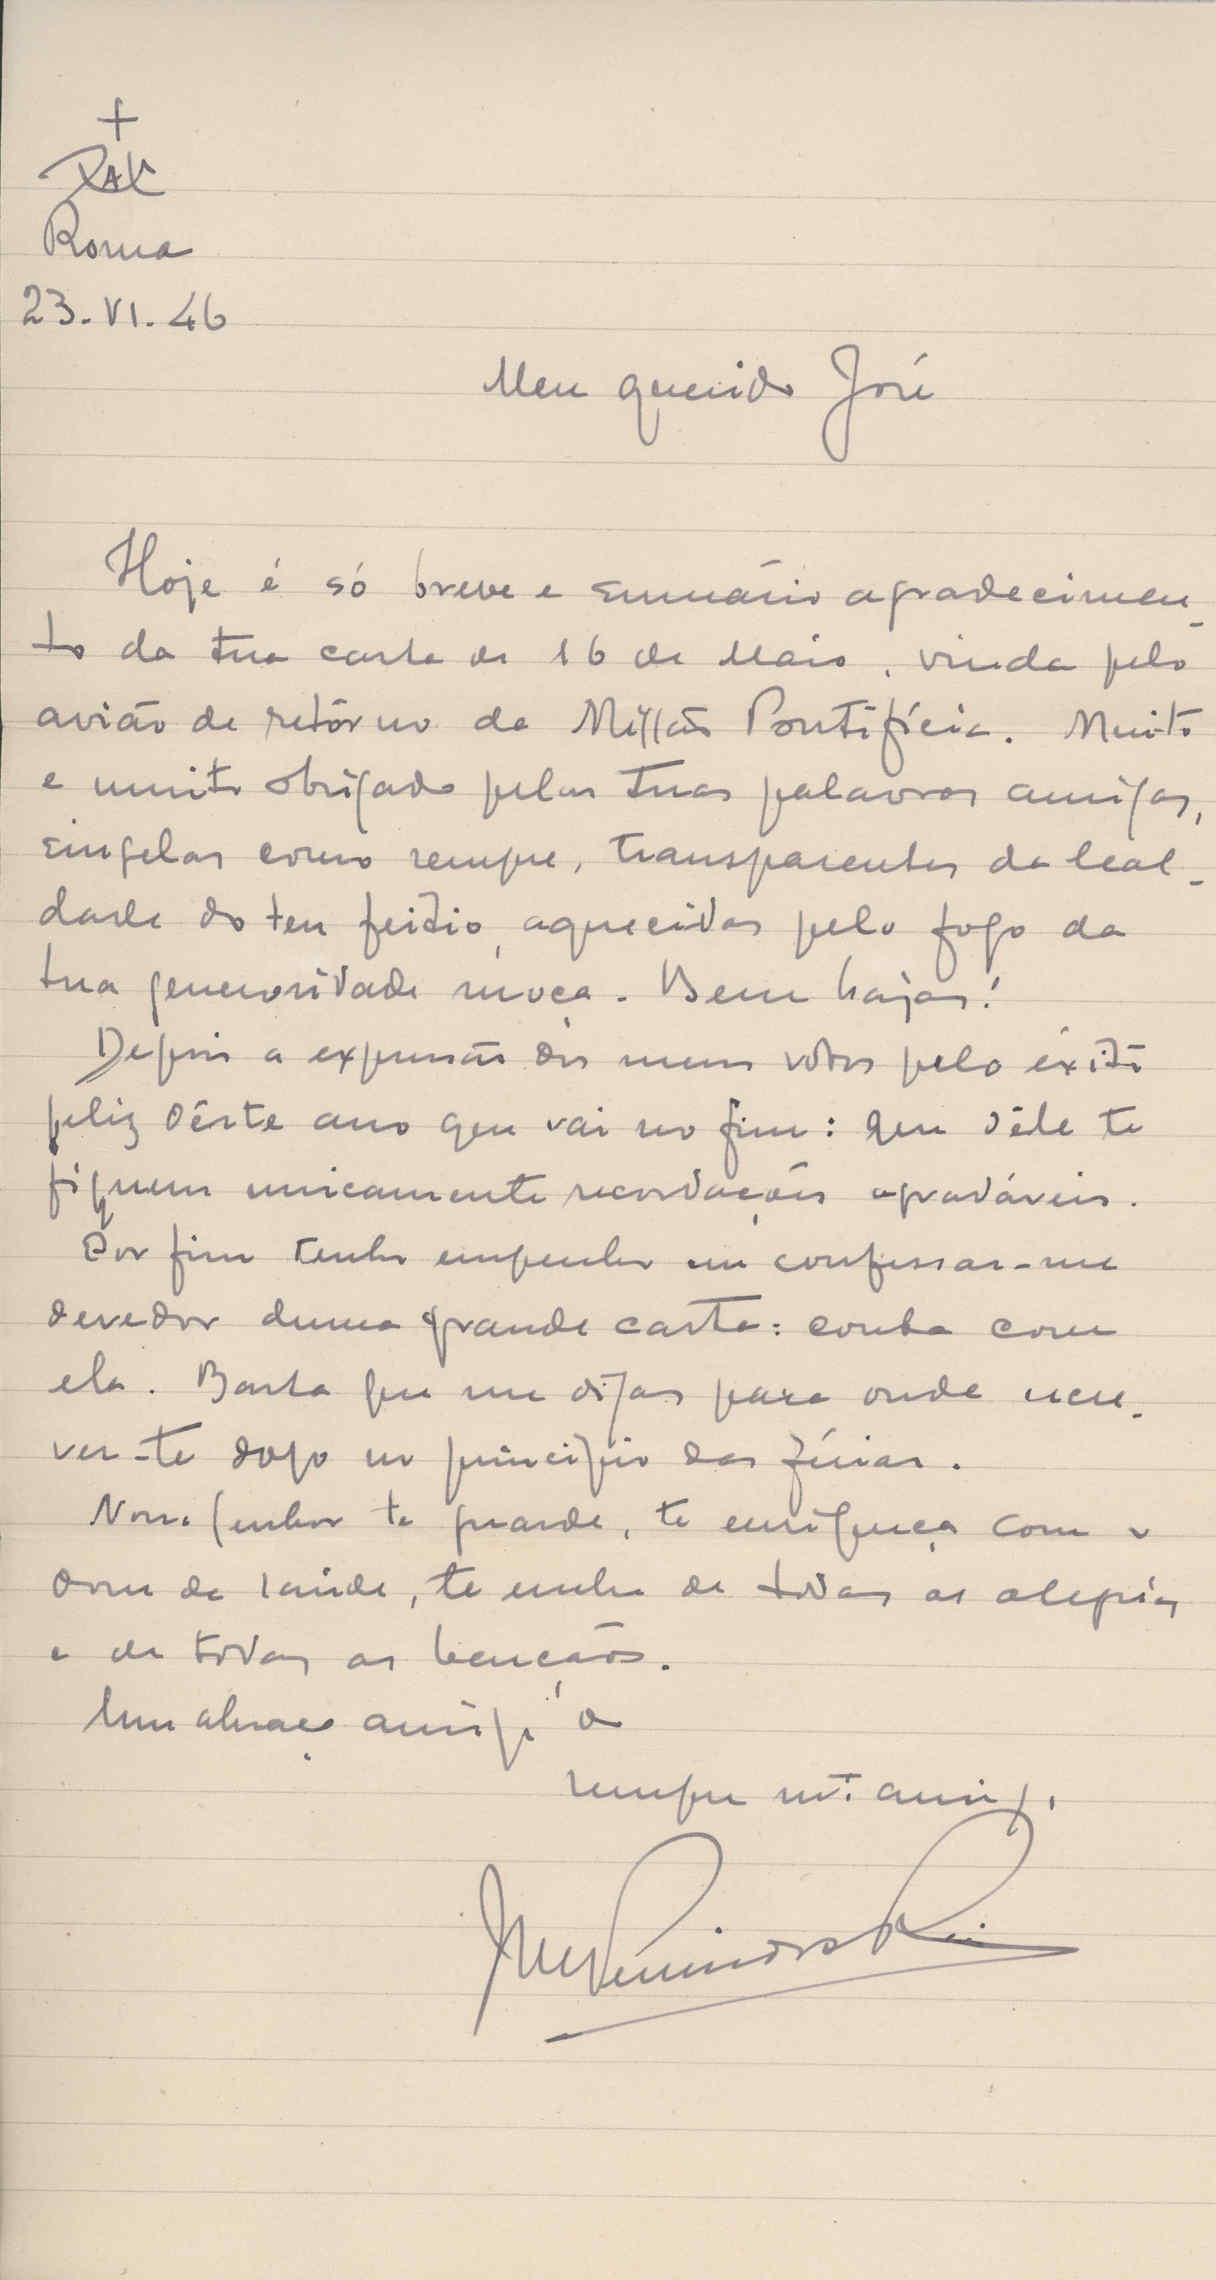 +
PAX
Roma
23.VI.46
Meu querido José
Hoje é só breve e sumário agradecimen-
to da tua carta de 16 de Maio, vinda pelo
avião de retôrno da Missão Pontifícia. Muito
e muito obrigado pelas tuas palavras amigas,
singelas como sempre, transparentes da leal-
dade do teu feitio, aquecidas pelo fogo da
tua generosidade moça. Bem hajas!
Depois a expressão dos meus votos pelo êxito
feliz dêste ano que vai no fim: que dêle te
fiquem unicamente recordações agradáveis.
Por fim tenho empenho em confessar-me
devedor duma grande carta: conta com
ela. Basta que me digas para onde escre-
ver-te logo no princípio das férias.
Nosso Senhor te guarde, te enriqueça com o
dom da saúde, te encha de todas as alegrias
e de todas as bençãos.
Um abraço amigo do
sempre mt.º amigo